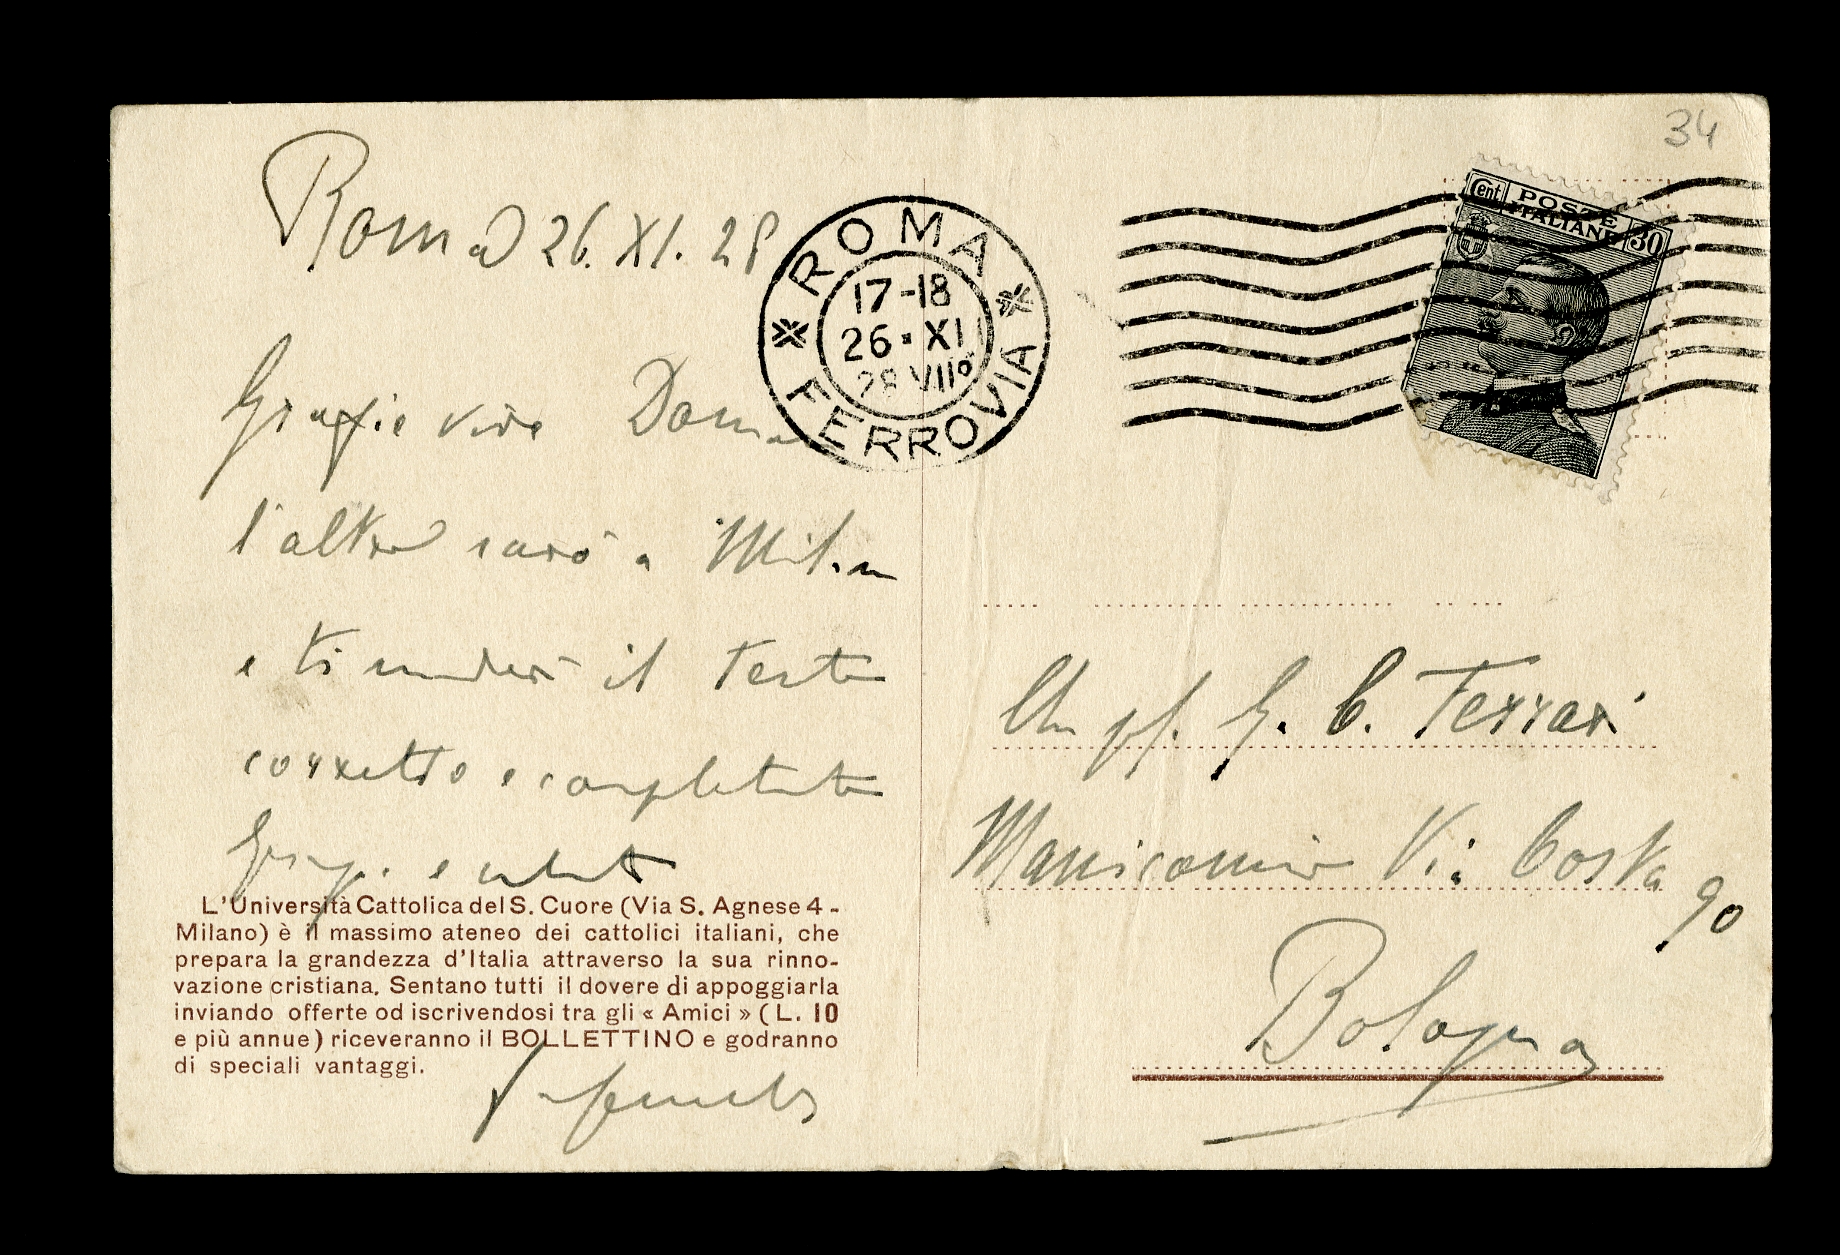 34
Roma 26. XI. 28
ROMA
17-18
26 · XI
28 VIIº
FERROVIA
Cent
POSTE
ITALIANE
30
Grazie vive Doma
l'altro sarò a Milano
e ti manderò il testo
corretto e completato
Grazie e saluti
L'Università Cattolica del S. Cuore (Via S. Agnese 4 -
Milano) è il massimo ateneo dei cattolici italiani, che
prepara la grandezza d'Italia attraverso la sua rinno-
vazione cristiana. Sentano tutti il dovere di appoggiarla
inviando offerte od iscrivendosi tra gli « Amici » (L. 10
e più annue) riceveranno il BOLLETTINO e godranno
di speciali vantaggi.
Gemelli
Ch. pf. G. C. Ferrari
Manicomio Via Costa
90
Bologna